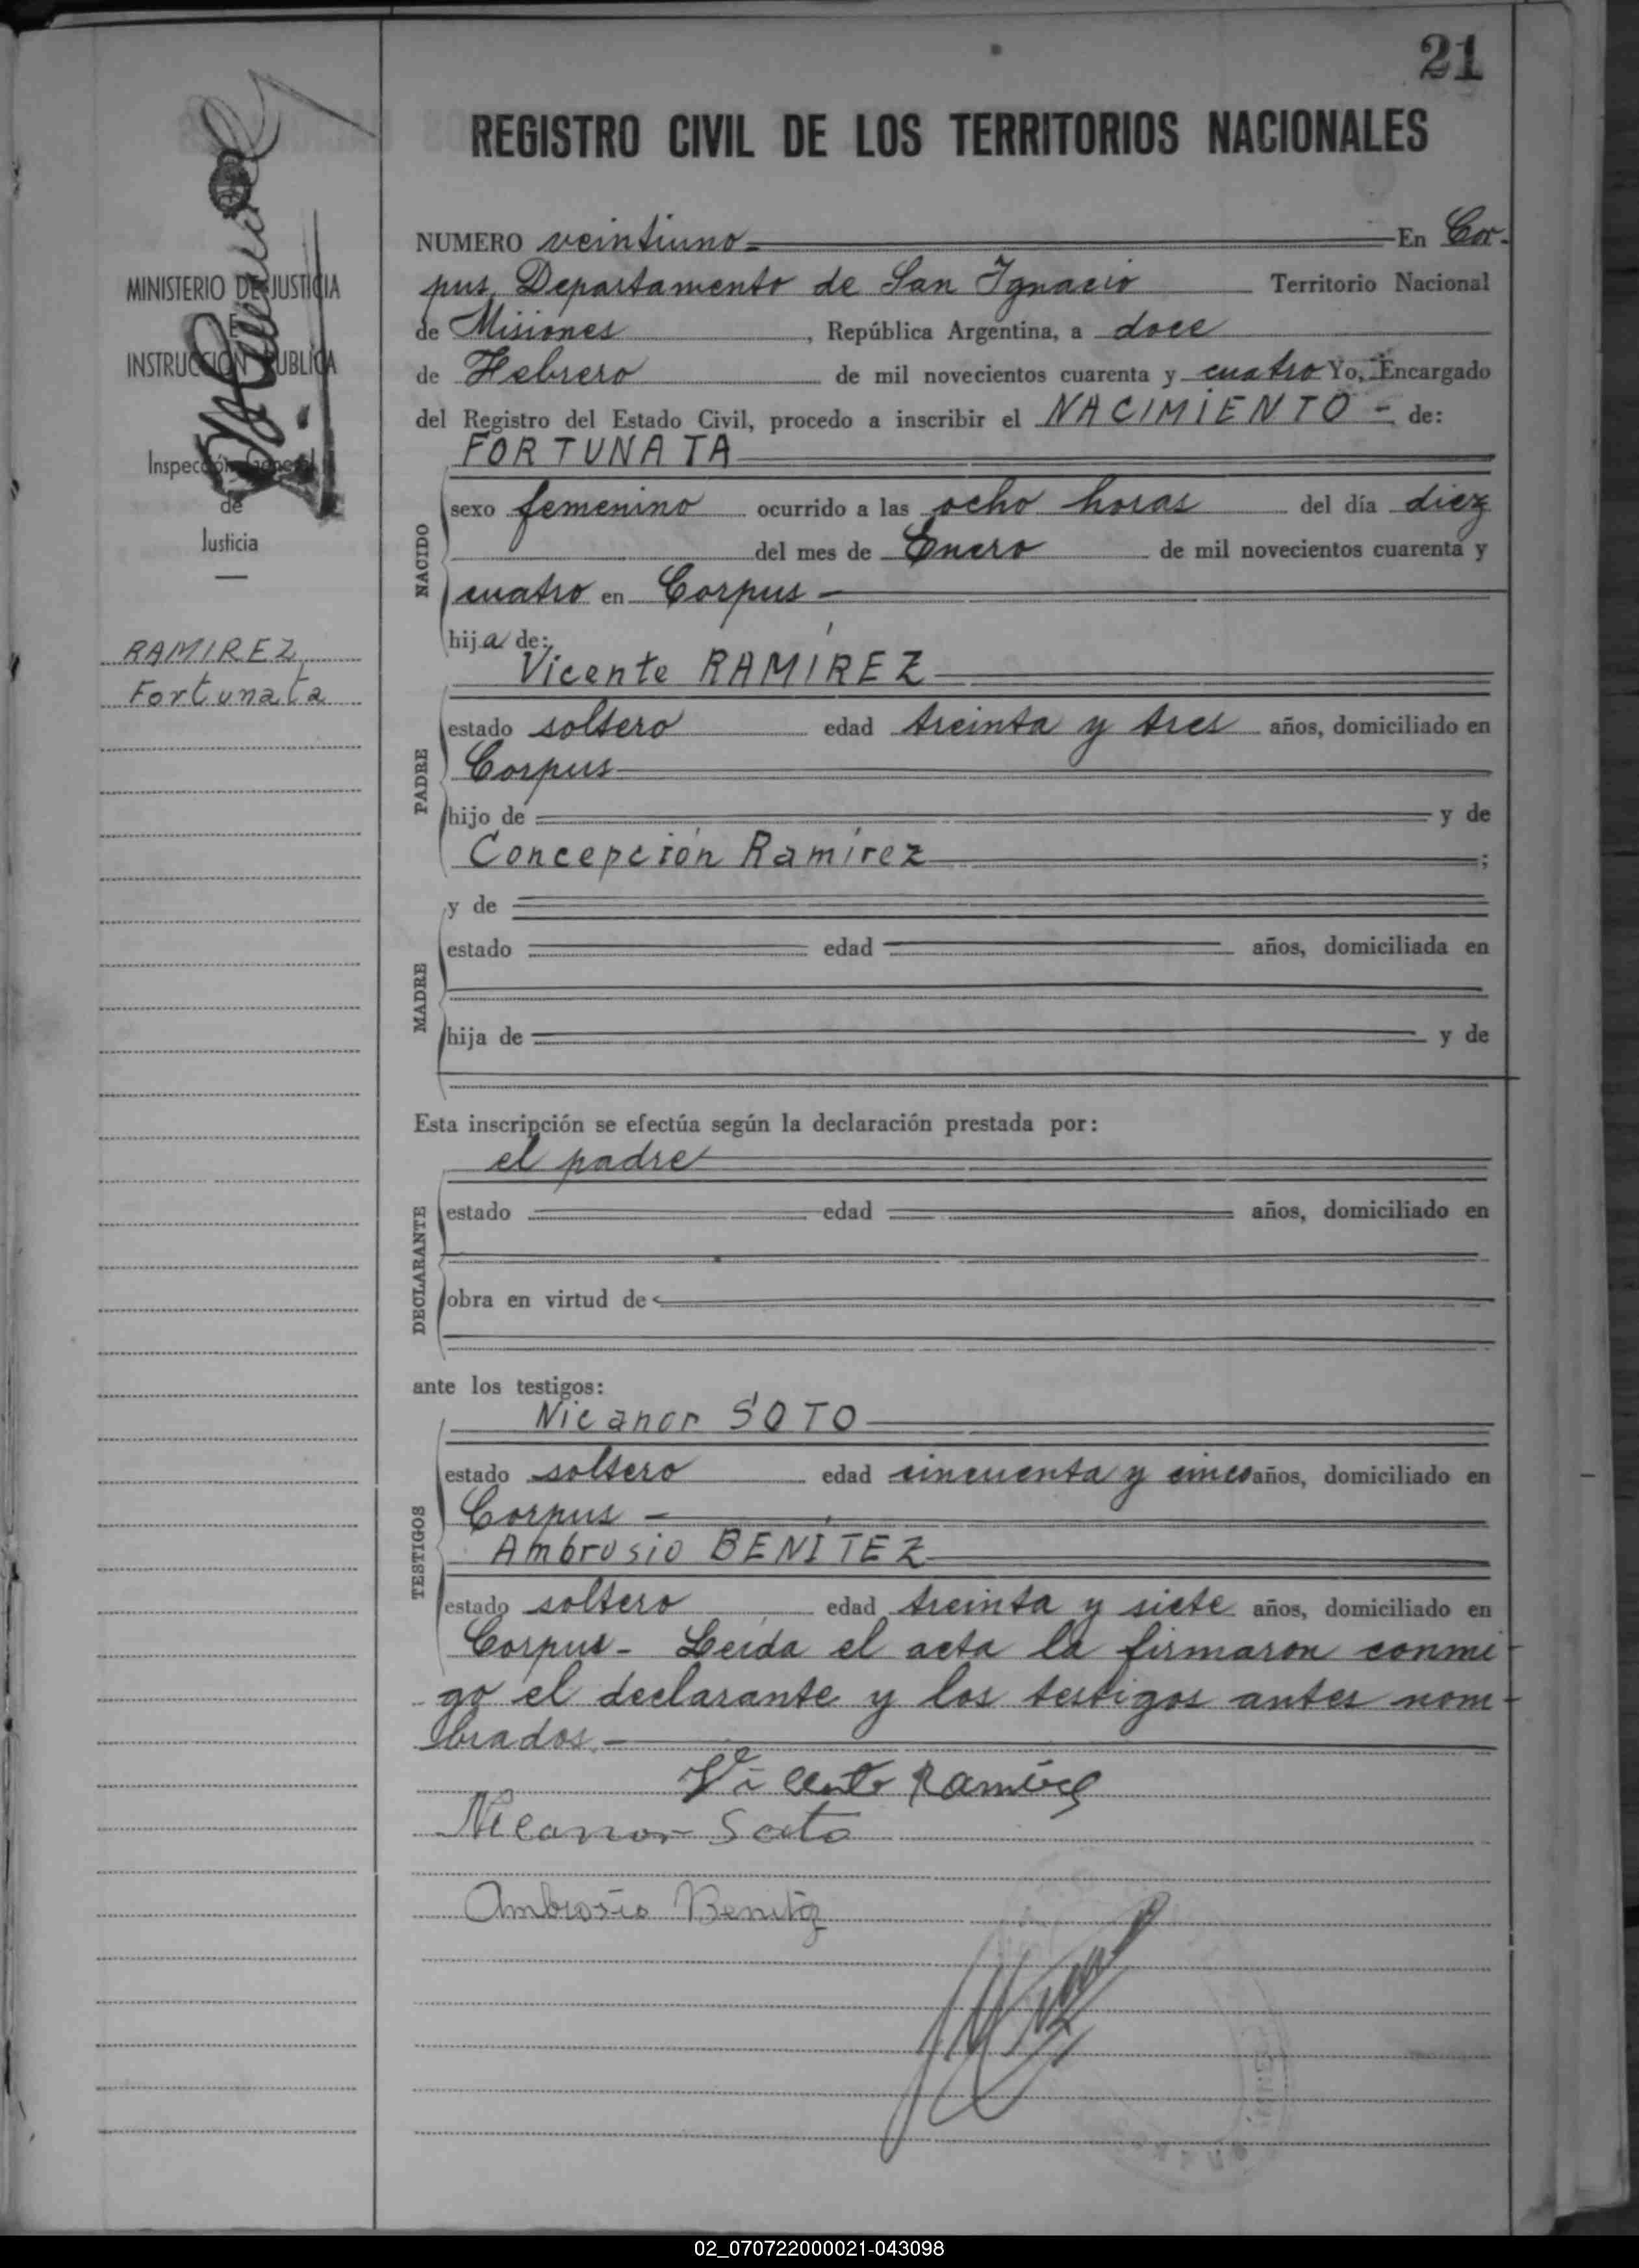 21
REGISTRO CIVIL DE LOS TERRITORIOS NACIONALES
MINISTERIO DE JUSTICIA
E
INSTRUCCIÓN PUBLICA
Inspección General
de
Justicia
RAMIREZ
Fortunata
NUMERO veintiuno En Cor-
pus, Departamento de San Ignacio Territorio Nacional
de Misiones, República Argentina, a doce
de Febrero de mil novecientos cuarenta y cuatro Yo, Encargado
del Registro del Estado Civil, procedo a inscribir el NACIMIENTO - de:
FORTUNATA
NACIDO
sexo femenino ocurrido a las ocho horas del día diez
del mes de Enero de mil novecientos cuarenta y
cuatro en Corpus -
hija de:
Vicente RAMÍREZ
PADRE
estado soltero edad treinta y tres años, domiciliado en
Corpus
hijo de y de
Concepción Ramírez ;
y de
MADRE
estado edad años, domiciliada en
hija de y de
Esta inscripción se efectúa según la declaración prestada por:
el padre
DECLARANTE
estado edad años, domiciliado en
obra en virtud de
ante los testigos:
Nicanor SOTO
TESTIGOS
estado soltero edad cincuenta y cinco años, domiciliado en
Corpus -
Ambrosio BENÍTEZ
estado soltero edad treinta y siete años, domiciliado en
Corpus - Leída el acta la firmaron conmi-
go el declarante y los testigos antes nom-
brados. -
Vicente Ramírez
Nicanor Soto
Ambrosio Benitez
02_070722000021-043098